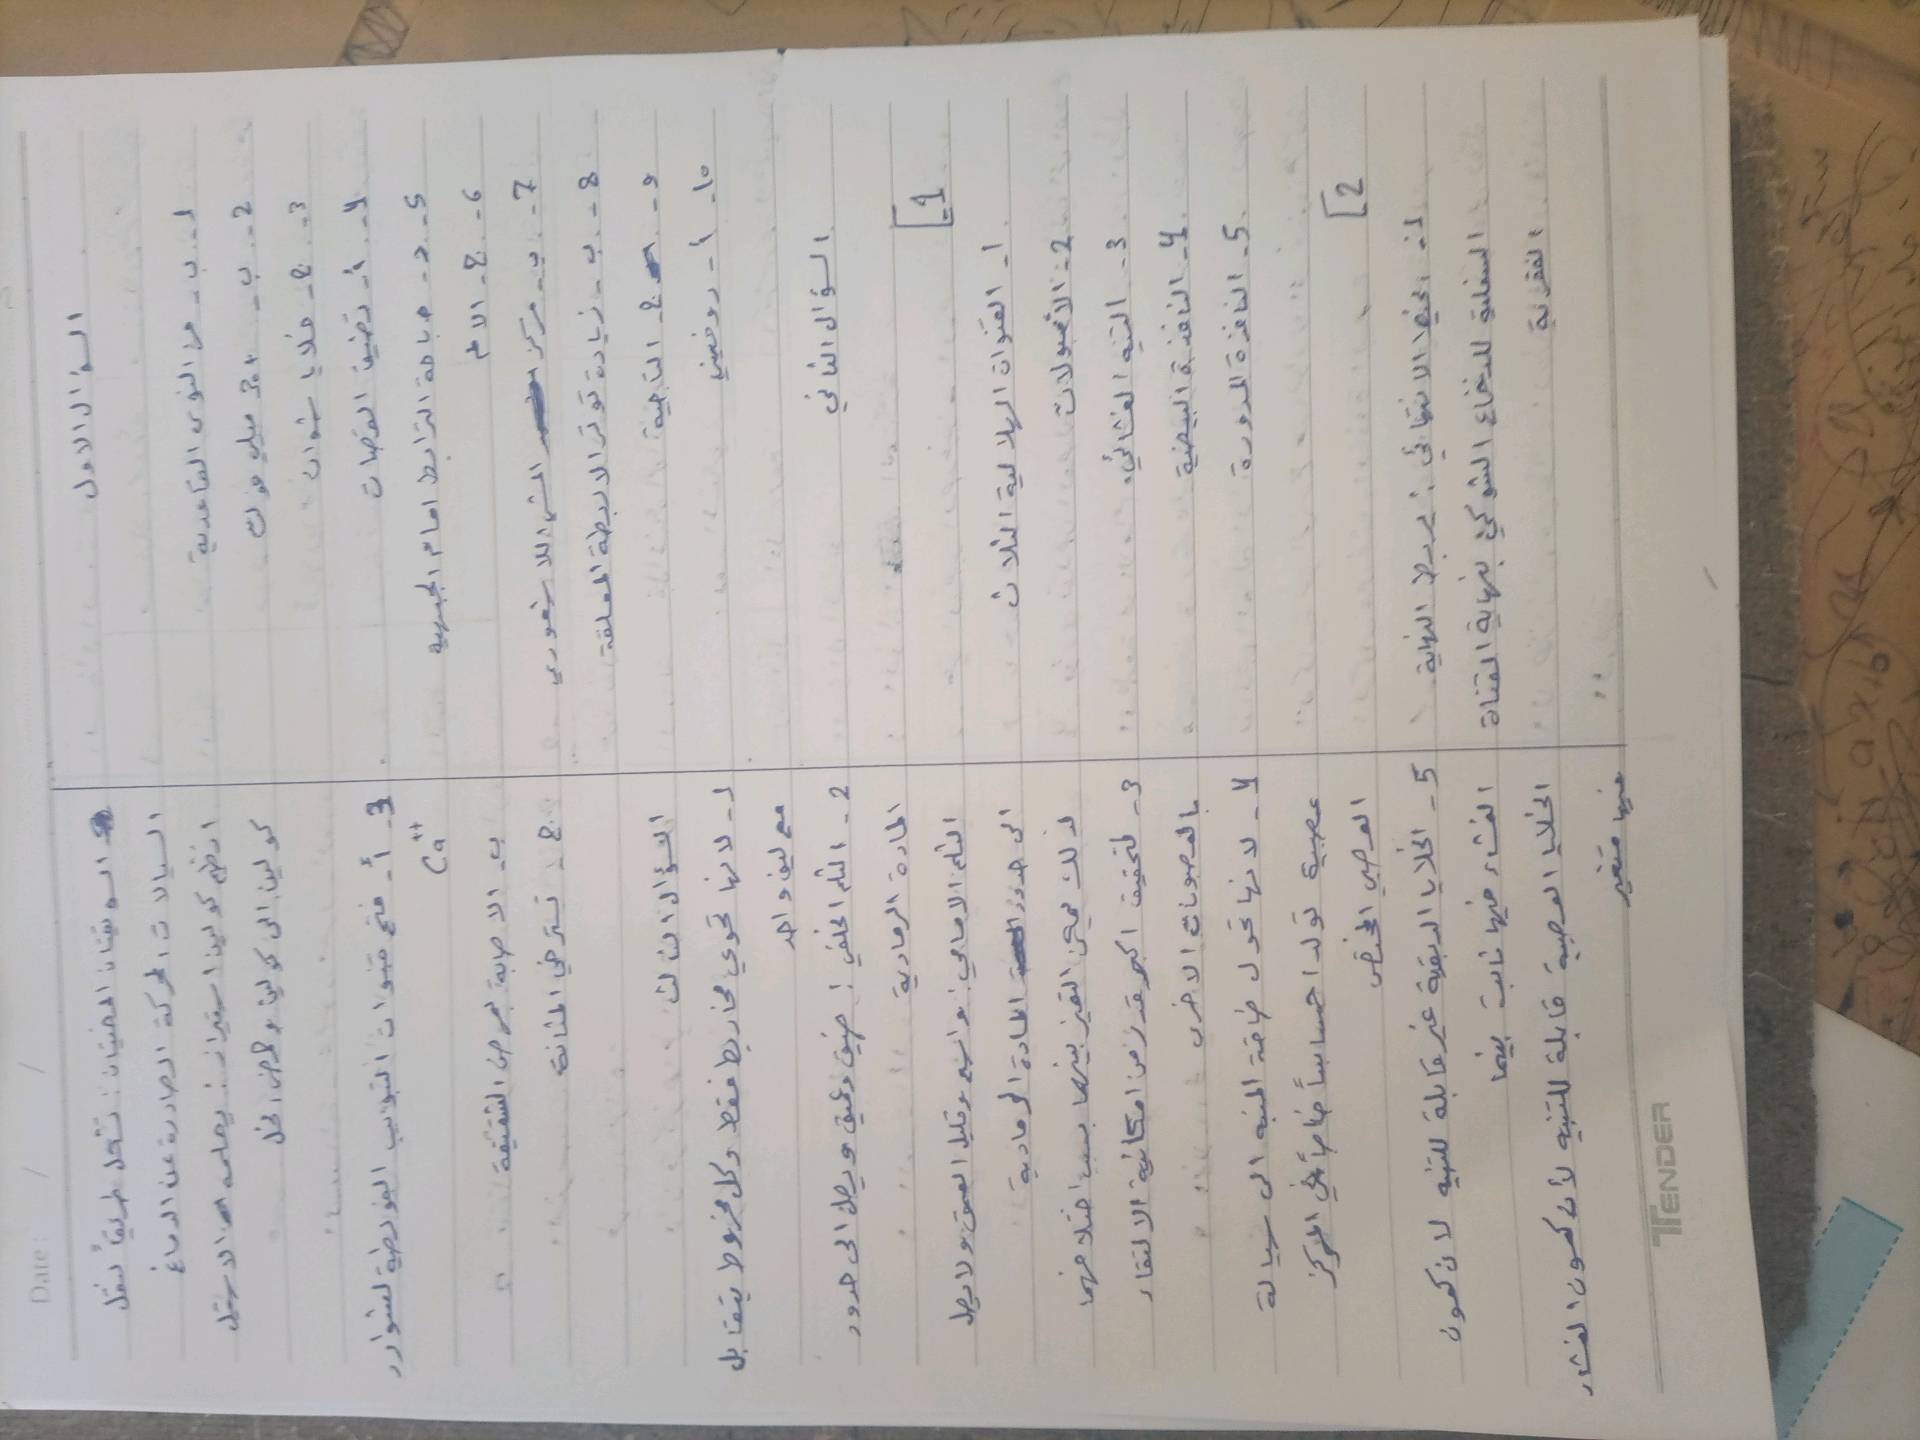 Date: / /
السؤال الاول
1- ب- من النوى القاعدية
2- ب- +30 ميلي فولت
3- ج- خلايا شوان
4- أ- تضيق القصبات
5- د- صباحة الترابط امام الجبهية
6- ج- الام
7- ب- مركز الشم اللاشعوري
8- ب- زيادة توتر الاربطة المعلقة
9- ج- التاجية
10- أ- رودوبسين
السؤال الثاني
1
1- القنوات الهلالية الثلاث
2- الأمبولات
3- التيه الغشائي
4- النافذة البيضية
5- النافذة المدورة
2
1- الخيط الانتهائي: يربط النهاية
السفلية للنخاع الشوكي بنهاية القناة
الفقرية
السويقتان المخيتان: تشكل طريقاً لنقل
السيالات المحركة الصادرة عن الدماغ
انظيم كولين استيراز: يحلمه الاستيل
كولين الى كولين وحمض الخل
3- أ- فتح قنوات التبويب الفولطية لشوارد
Ca++
ب- الاصابة بمرض الشقيقة
ج- تسترخي المثانة
السؤال الثالث
1- لانها تحوي مخاريط فقط وكل مخروط يتقابل
مع ليف واحد
2- الثلم الخلفي: ضيق وعميق ويصل الى حدود
المادة الرمادية
الثلم الامامي: واسع وقليل العمق ولا يصل
الى حدود المادة الرمادية
لذلك يمكن التميز بينهما بسبب اختلافهما
3- لتحقيق اكبر قدر من امكانية الالتقاء
بالعصبونات الاخرى
4- لانها تحول طاقة المنبه الى سيالة
عصبية تولد احساساً خاصاً في المركز
العصبي المختص
5- الخلايا الدبقية غير قابلة للتنبه لان كمون
الغشاء فيها ثابت بينما
الخلايا العصبية قابلة للتنبه لأن كمون الغشاء
فيها متغير
TENDER